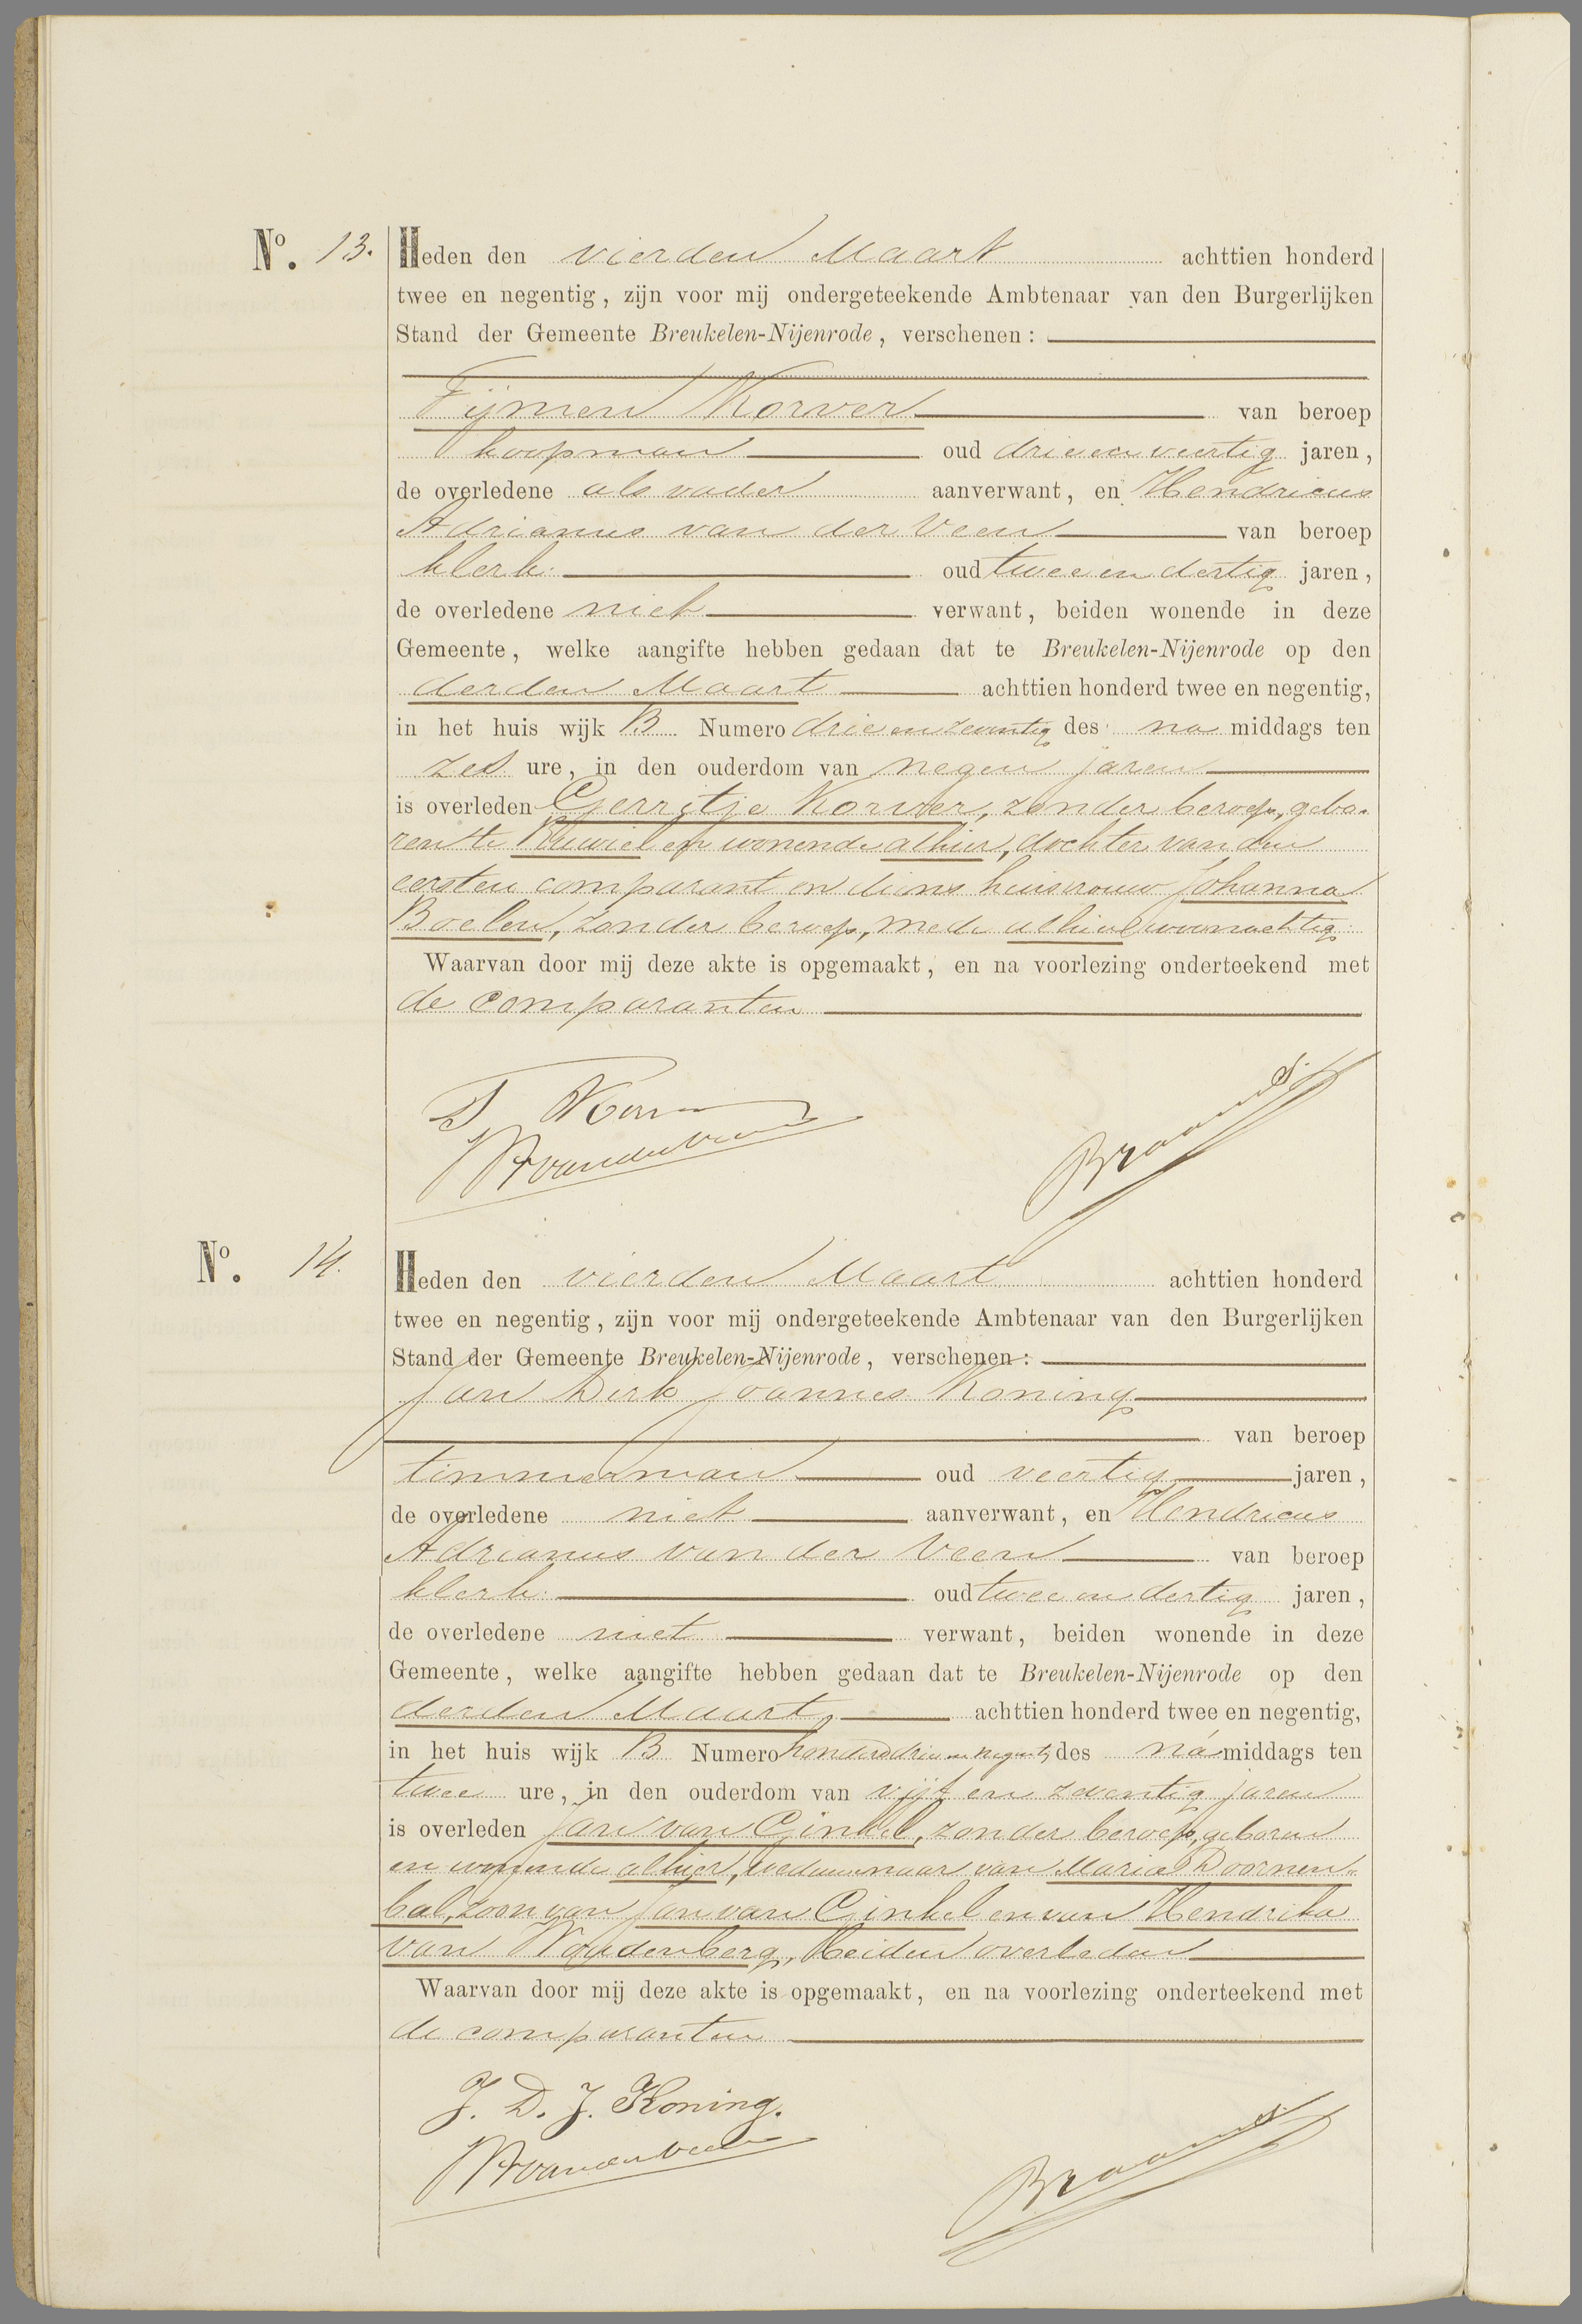 No. 13. Heden den vierden Maart achttien honderd
twee en negentig, zijn voor mij ondergeteekende Ambtenaar van den Burgerlijken
Stand der Gemeente Breukelen-Nijenrode, verschenen:
Tijmen Korver van beroep
koopman oud drie en veertig jaren,
de overledene als vader aanverwant, en Hendricus
Adrianus van der Veen van beroep
klerk. oud twee en dertig jaren,
de overledene niet verwant, beiden wonende in deze
Gemeente, welke aangifte hebben gedaan dat te Breukelen-Nijenrode op den
derden Maart achttien honderd twee en negentig,
in het huis wijk B Numero drie en zeventig des na middags ten
zes ure, in den ouderdom van negen jaren
is overleden Gerritje Korver, zonder beroep, gebo-
ren te Ruwiel en wonende alhier, dochter van den
eersten comparant en diens huisvrouw Johanna
Boelen, zonder beroep, mede alhier woonachtig.
Waarvan door mij deze akte is opgemaakt, en na voorlezing onderteekend met
de comparanten
T Korver
HAvanderVeen
No. 14. Heden den vierden Maart achttien honderd
twee en negentig, zijn voor mij ondergeteekende Ambtenaar van den Burgerlijken
Stand der Gemeente Breukelen-Nijenrode, verschenen:
Jan Dirk Joannes Koning
van beroep
timmerman oud veertig jaren,
de overledene niet aanverwant, en Hendricus
Adrianus van der Veen van beroep
klerk. oud twee en dertig jaren,
de overledene niet verwant, beiden wonende in deze
Gemeente, welke aangifte hebben gedaan dat te Breukelen-Nijenrode op den
derden Maart, achttien honderd twee en negentig,
in het huis wijk B Numero honderd drie en negentig des na middags ten
twee ure, in den ouderdom van vijf en zeventig jaren
is overleden Jan van Ginkel, zonder beroep, geboren
en wonende alhier, weduwnaar van Maria Doornen-
bal, zoon van Jan van Ginkel en van Hendrika
van Woudenberg, beiden overleden
Waarvan door mij deze akte is opgemaakt, en na voorlezing onderteekend met
de comparanten
J. D. J. Koning.
HAvanderVeen